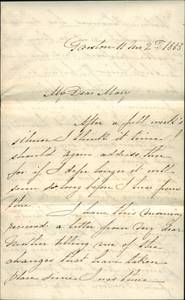 2nd 1865
My Dear Mary
After a full week's
silence I think it time I
should again address thee
for if I defer longer it will
seem so long before I hear from
thee.
I have this morning
perused a letter from my dear
Mother telling me of the
changes that have taken
place since I was there